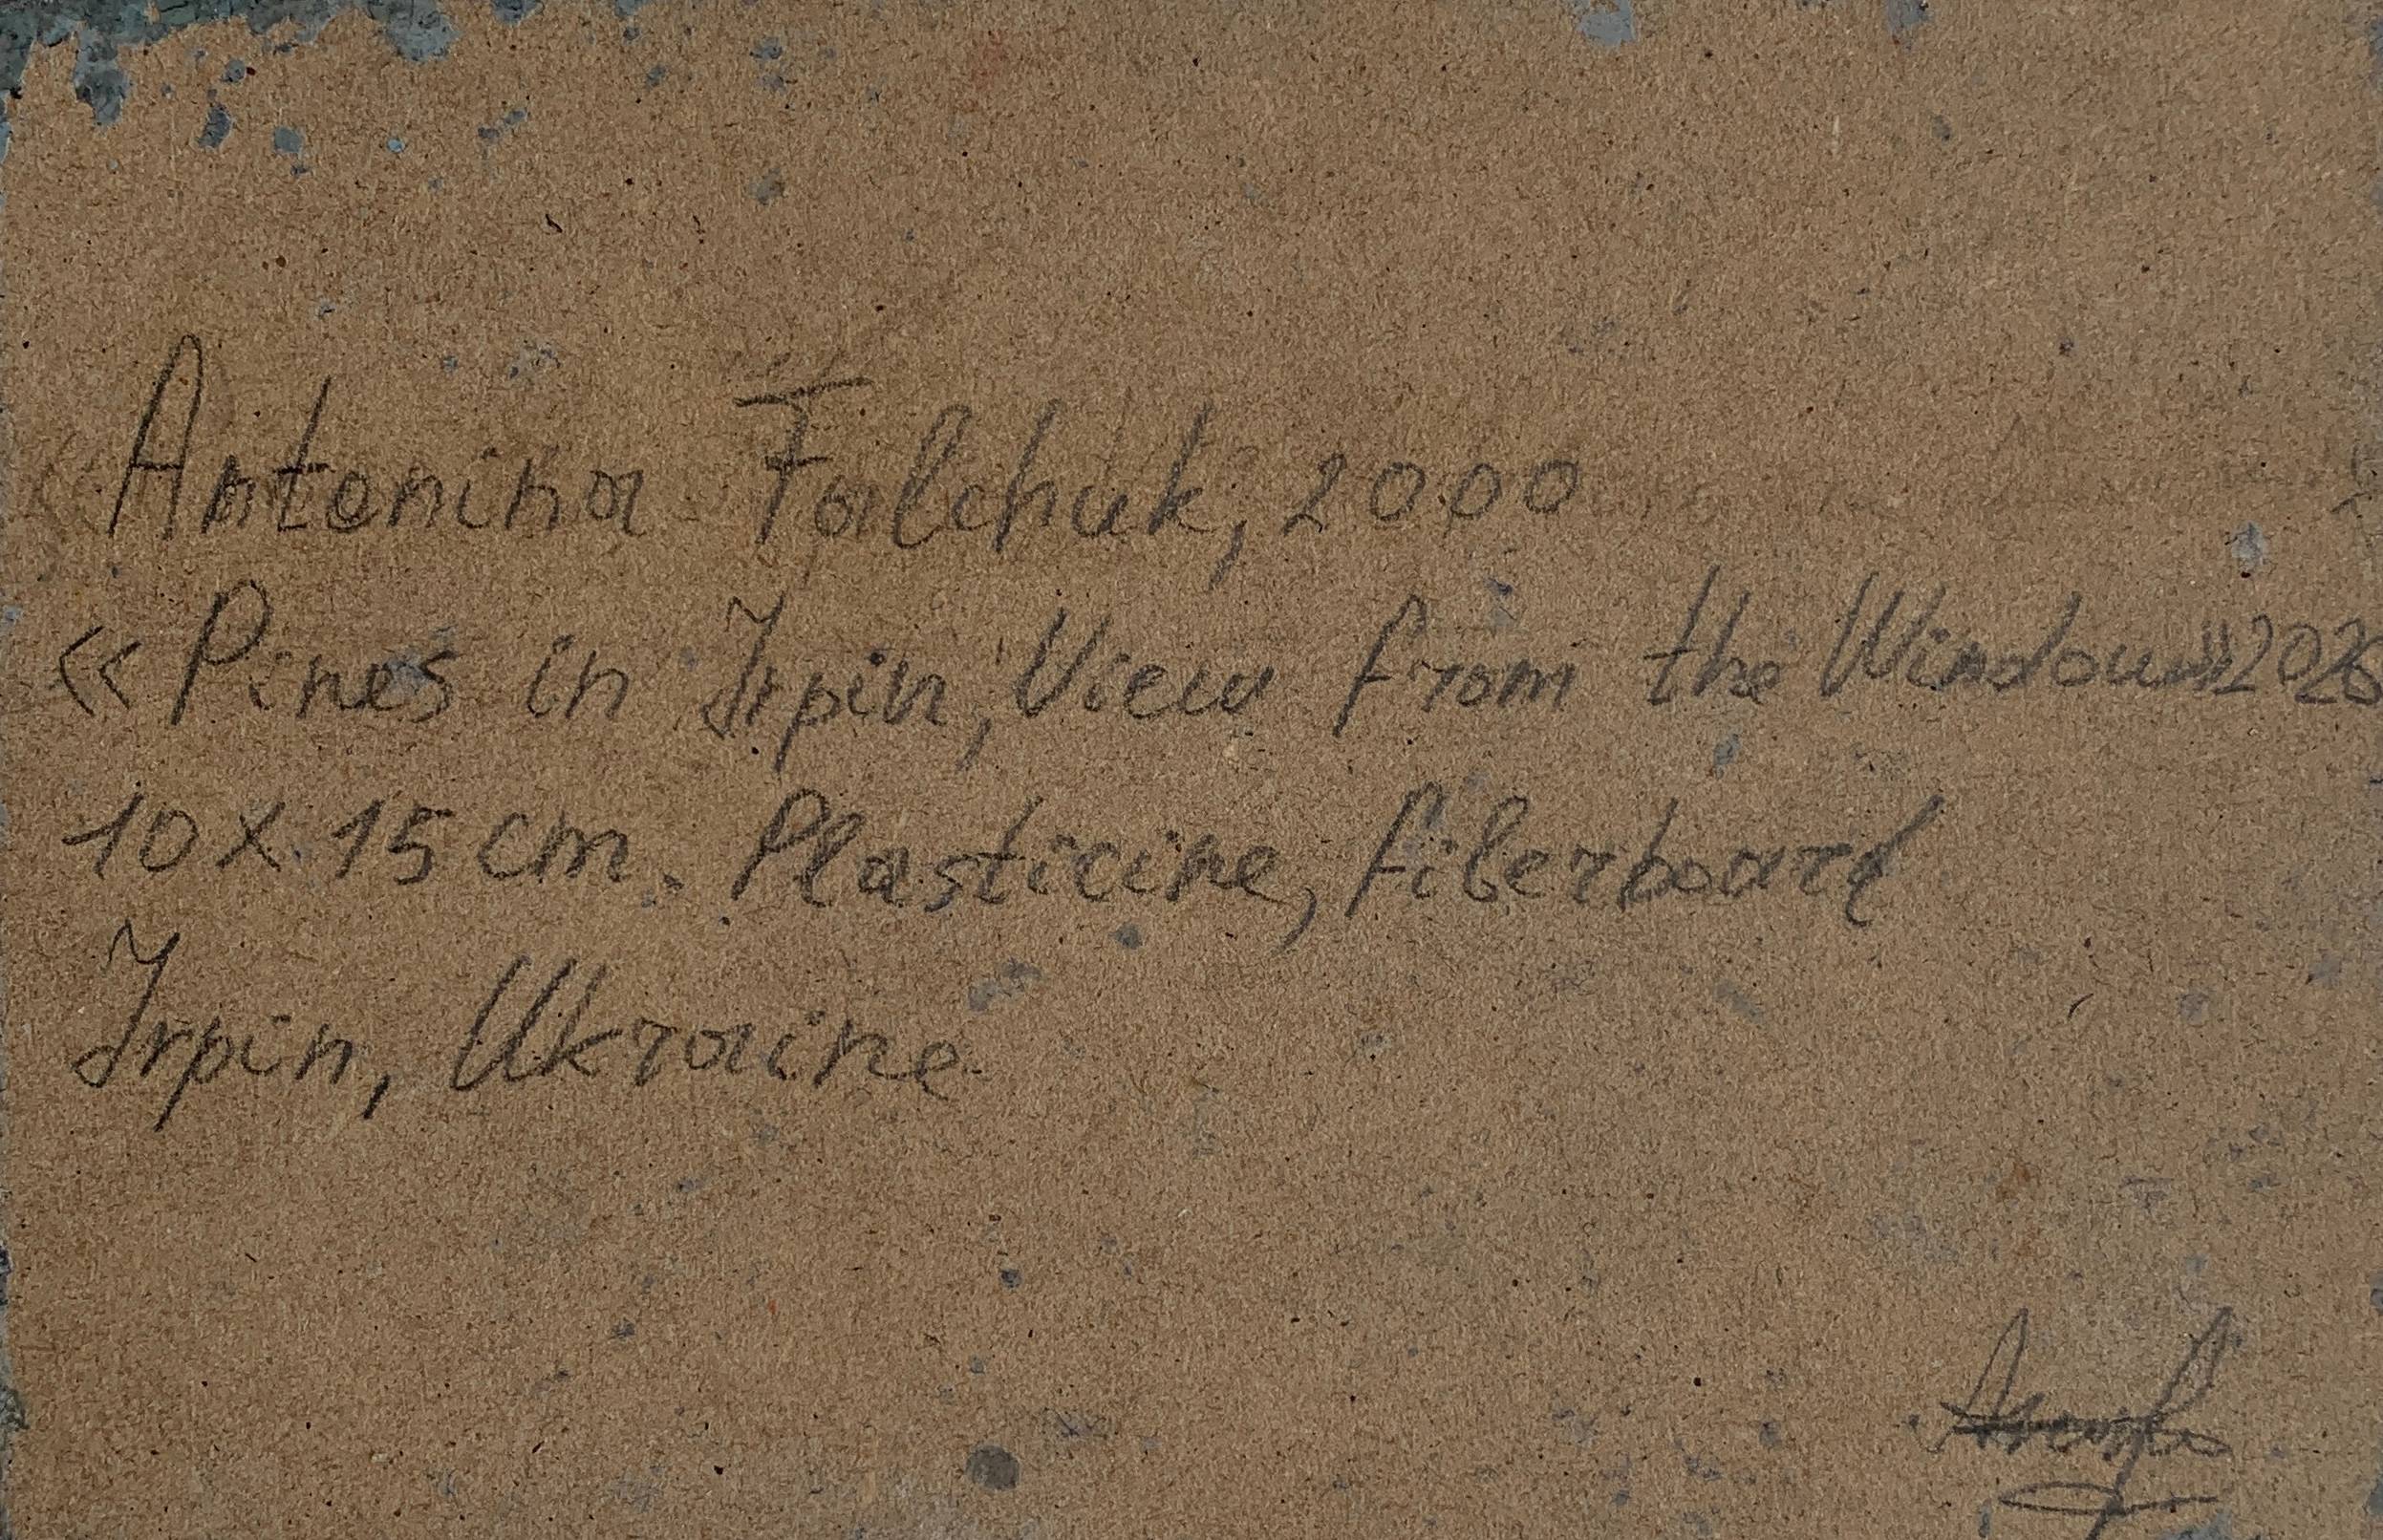 Antonina Falchuk, 2000
«Pines in Irpin, View from the Window» 2026
10 x 15 cm. Plasticine, fiberboard
Irpin, Ukraine